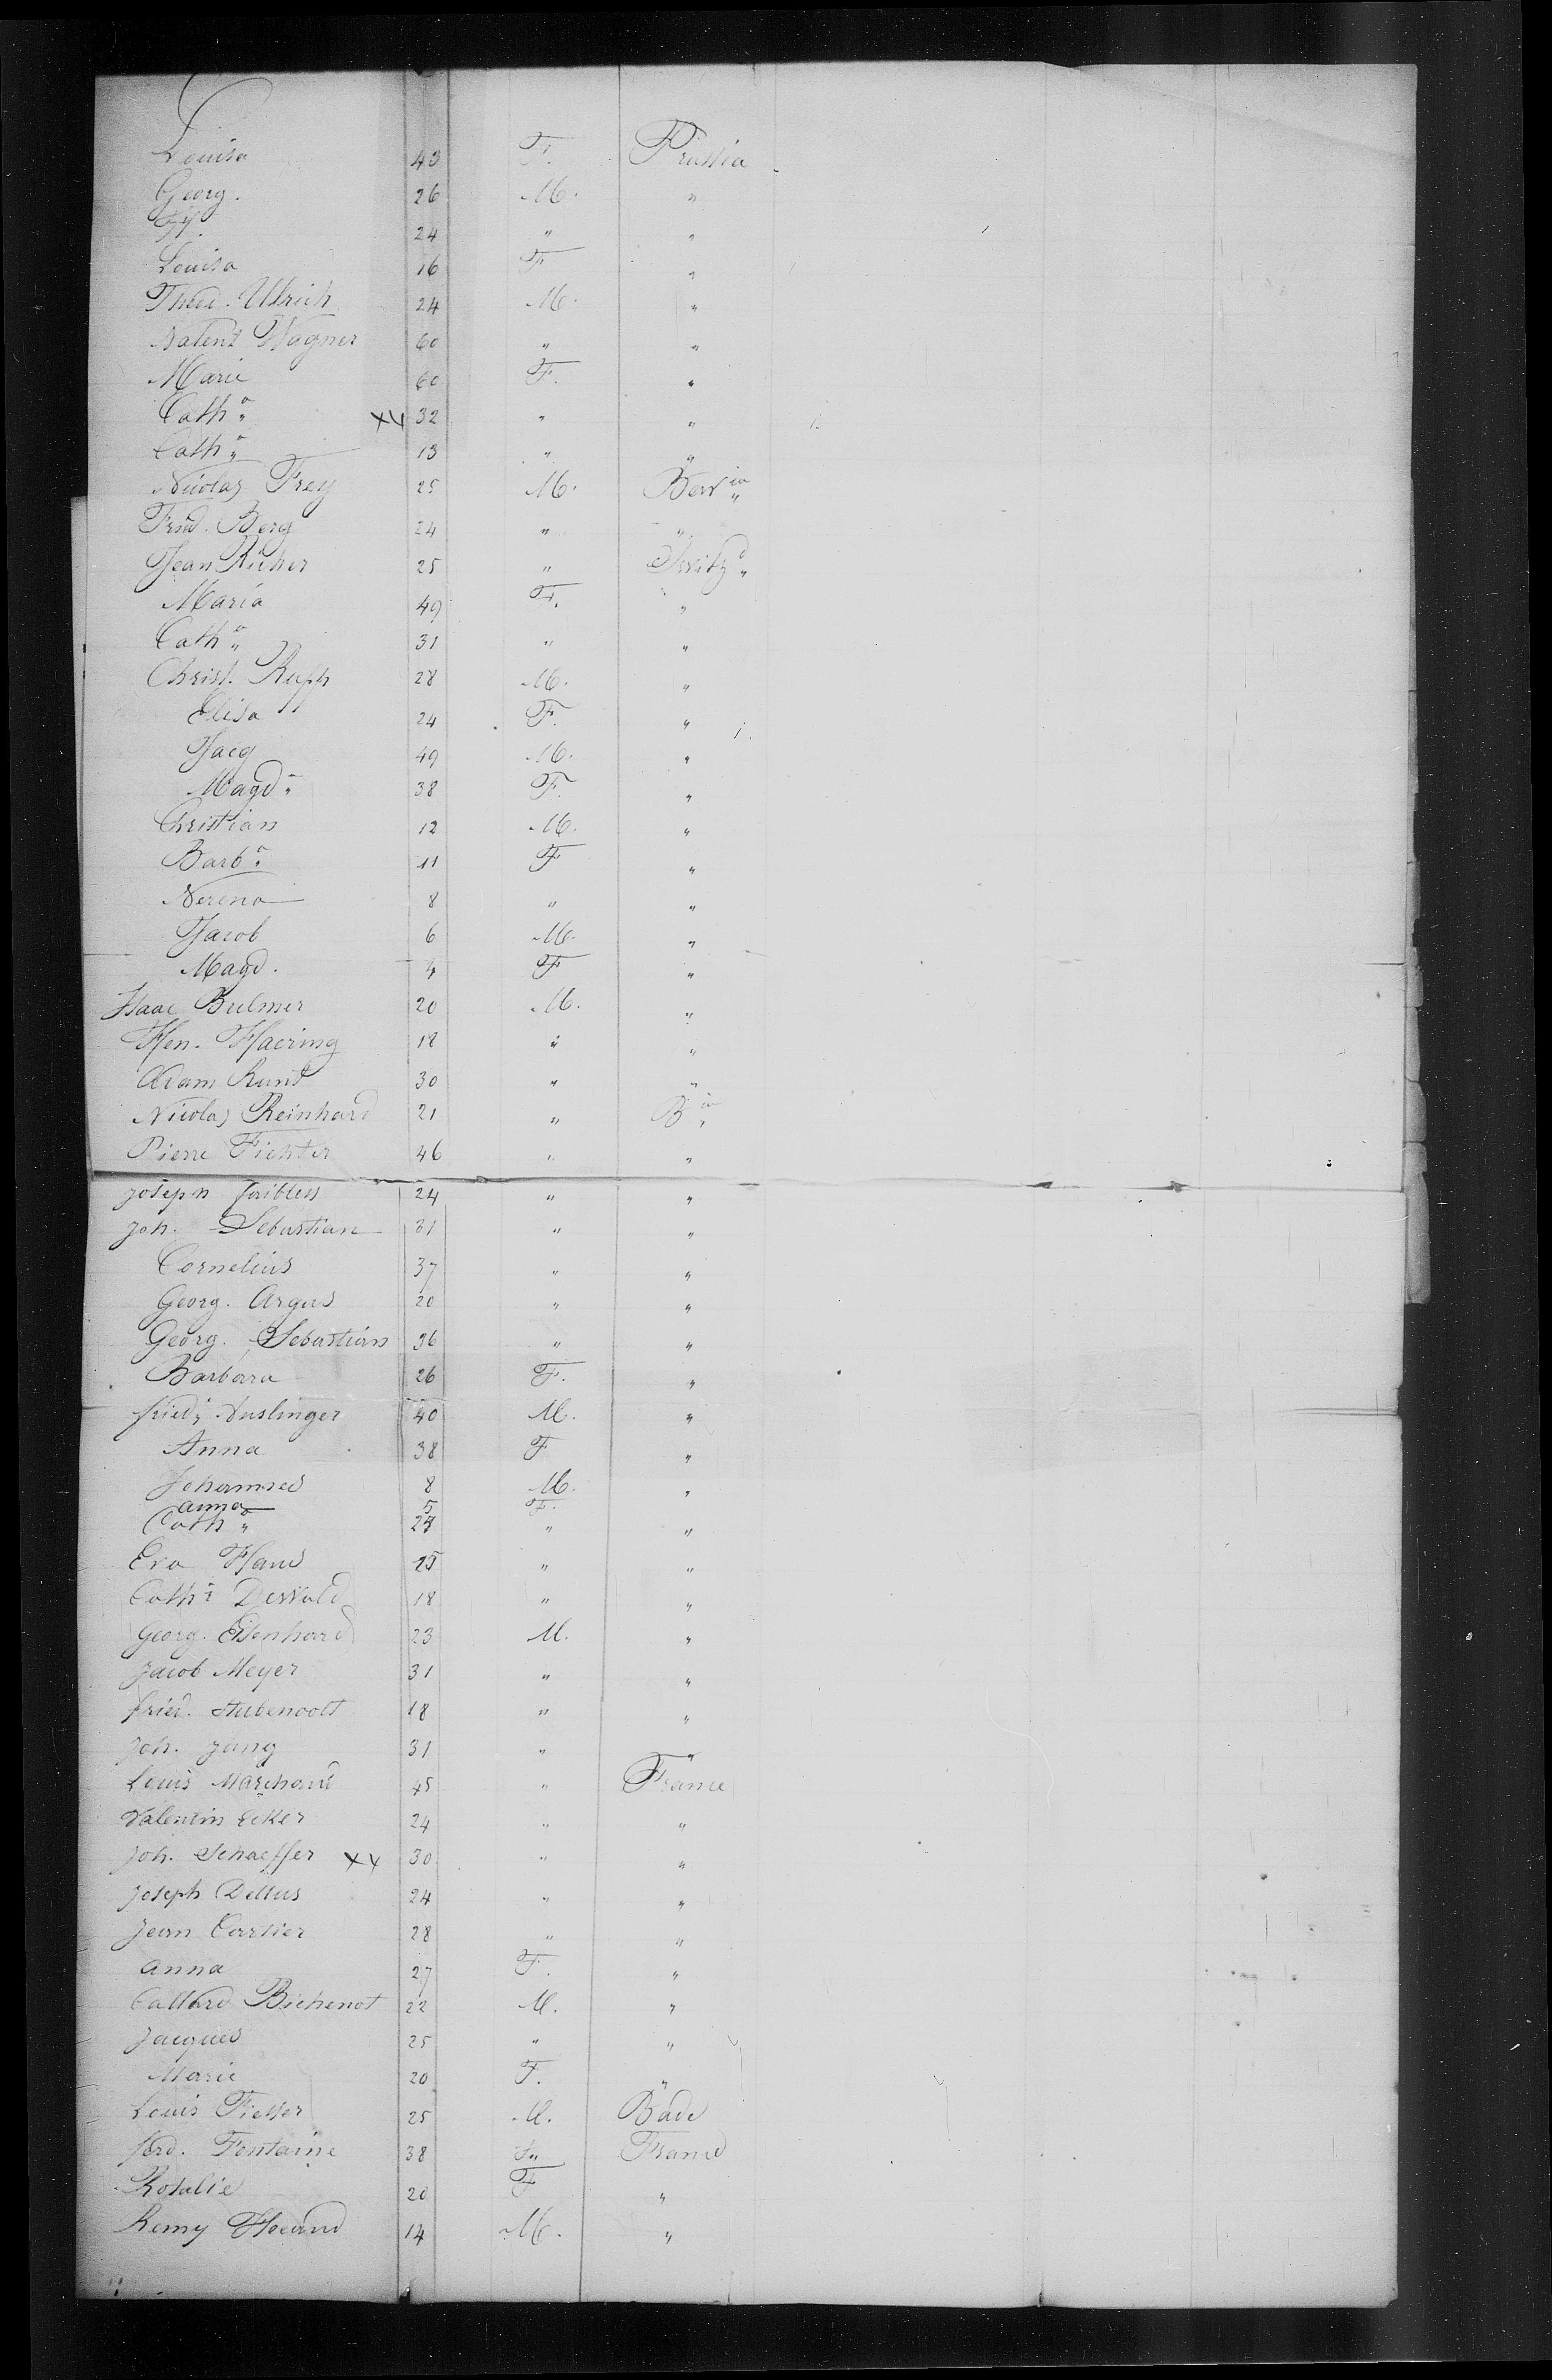 Louisa 43 F. Prussia
Georg. 26 M. "
24 " "
Louisa 16 F "
Theod. Ulrich 24 M. "
Valent Wagner 60 " "
Marie 60 F. "
Cath.a XX 32 " "
Cath.a 13 " "
Nicolas Frey 25 M. Bav ia
Fred. Berg 24 " "
Jean Richer 25 " Switz d
Maria 49 F. "
Cath a 31 " "
Christ. Rupp 28 M. "
Elisa 24 F. "
Jacq 49 M. "
Magd a 38 F. "
Christian 12 M. "
Barb a 11 F "
Verena 8 " "
Jacob 6 M. "
Magd. 4 F "
Isaac Bulmer 20 M. "
Hen. Haering 18 " "
Adam Kund 30 " "
Nicolas Reinhard 21 " B ia
Pierre Fichter 46 " "
Joseph 24 " "
Joh. Sebastian 31 " "
Cornelius 37 " "
Georg. Argus 20 " "
Georg. Sebastian 36 " "
Barbara 26 F. "
fried. Nuslinger 40 M. "
Anna 38 F "
Johannes 8 M. "
anna 5 F.
Cath a 24 " "
Eva Hans 25 " "
Cath a 18 " "
Georg. Eisenhard 23 M. "
Jacob Meyer 31 " "
fried. 18 " "
Joh. Jung 31 " "
Louis Marchand 45 " France
Valentin Ecker 24 " "
Joh. Schaeffer XX 30 " "
Joseph Dellus 24 " "
Jean Cartier 28 " "
anna 27 F. "
Bichenot 22 M. "
Jacques 25 " "
Marie 20 F. "
Louis 25 M. Bade
ferd. Fontaine 38 " France
Rosalie 20 F "
Remy 14 M. "